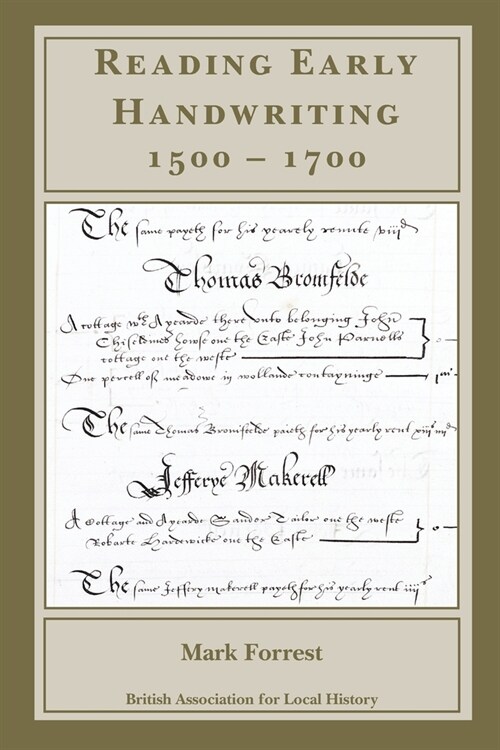 READING EARLY
HANDWRITING
1500 – 1700
The same payeth for his yearely rennte viijd
Thomas Bromfelde
A cottage wth A yearde there vnto belonging John
Chiseldines howse one the Easte John Parnolls
cottage one the weste
One percell off meadowe in wollande contayninge
The same Thomas Bromfelde paieth for his yearly rent xiijs iiijd
Jefferye Makerell
A Cottage and A yearde Sandor Tailor one the weste
Robarte Hardewicke one the Easte
The same Jeffery makerell payeth for his yearly rent iiijs
Mark Forrest
British Association for Local History